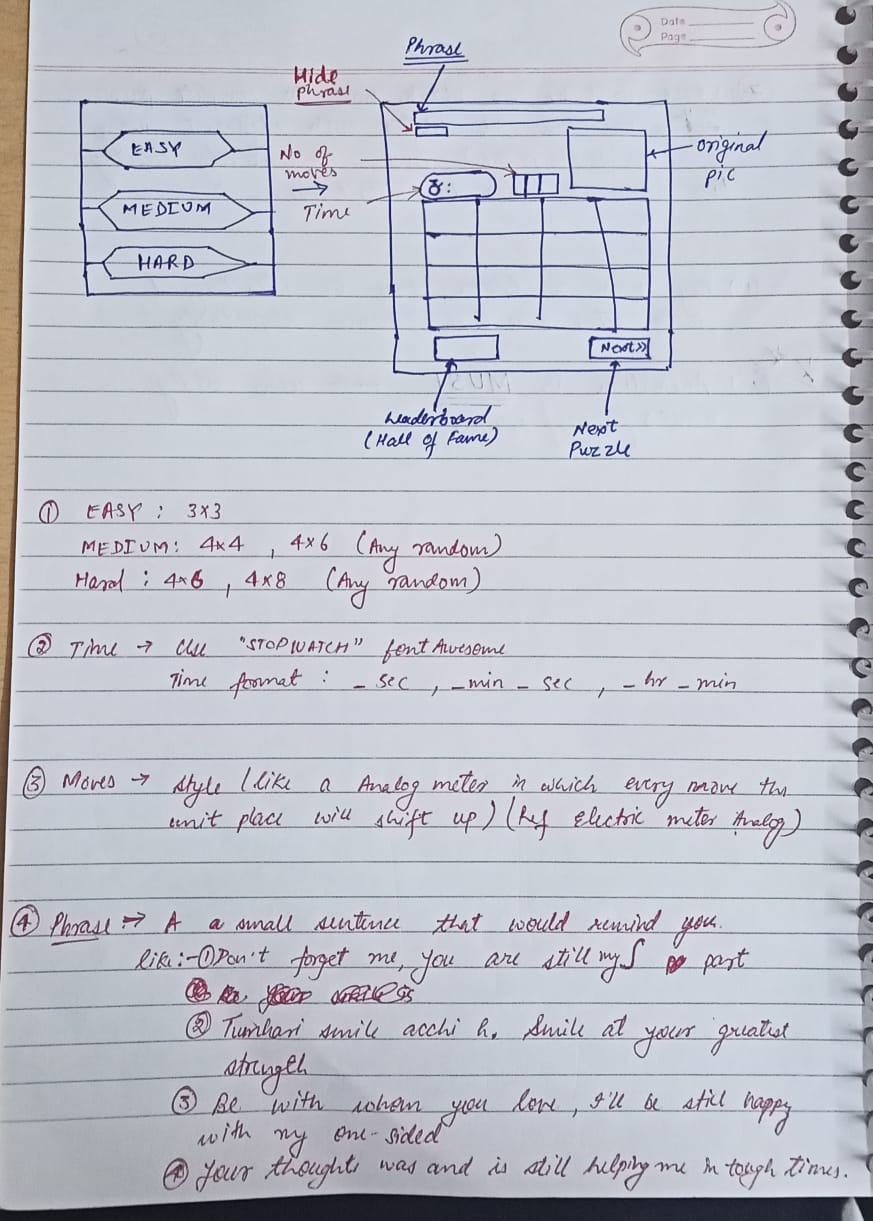 Date
Page
Phrase
Hide
phrase
EASY
MEDIUM
HARD
No of
moves
→
Time
8:
original
pic
Next>>
Leaderboard
(Hall of Fame)
Next
Puzzle
① EASY : 3x3
MEDIUM: 4x4 , 4x6 (Any random)
Hard : 4x6 , 4x8 (Any random)
② Time → Use "STOPWATCH" font Awesome
Time format : _ sec , _min _ sec , _ hr _ min
③ Moves → style (like a Analog meter in which every move the
unit place will shift up) (Ref electric meter Analog)
④ Phrase → A a small sentence that would remind you.
like:-① Don't forget me, you are still my part
② Tumhari smile acchi h, smile at your greatest
strength
③ Be with whom you love, I'll be still happy
with my one-sided
④ Your thoughts was and is still helping me in tough times.